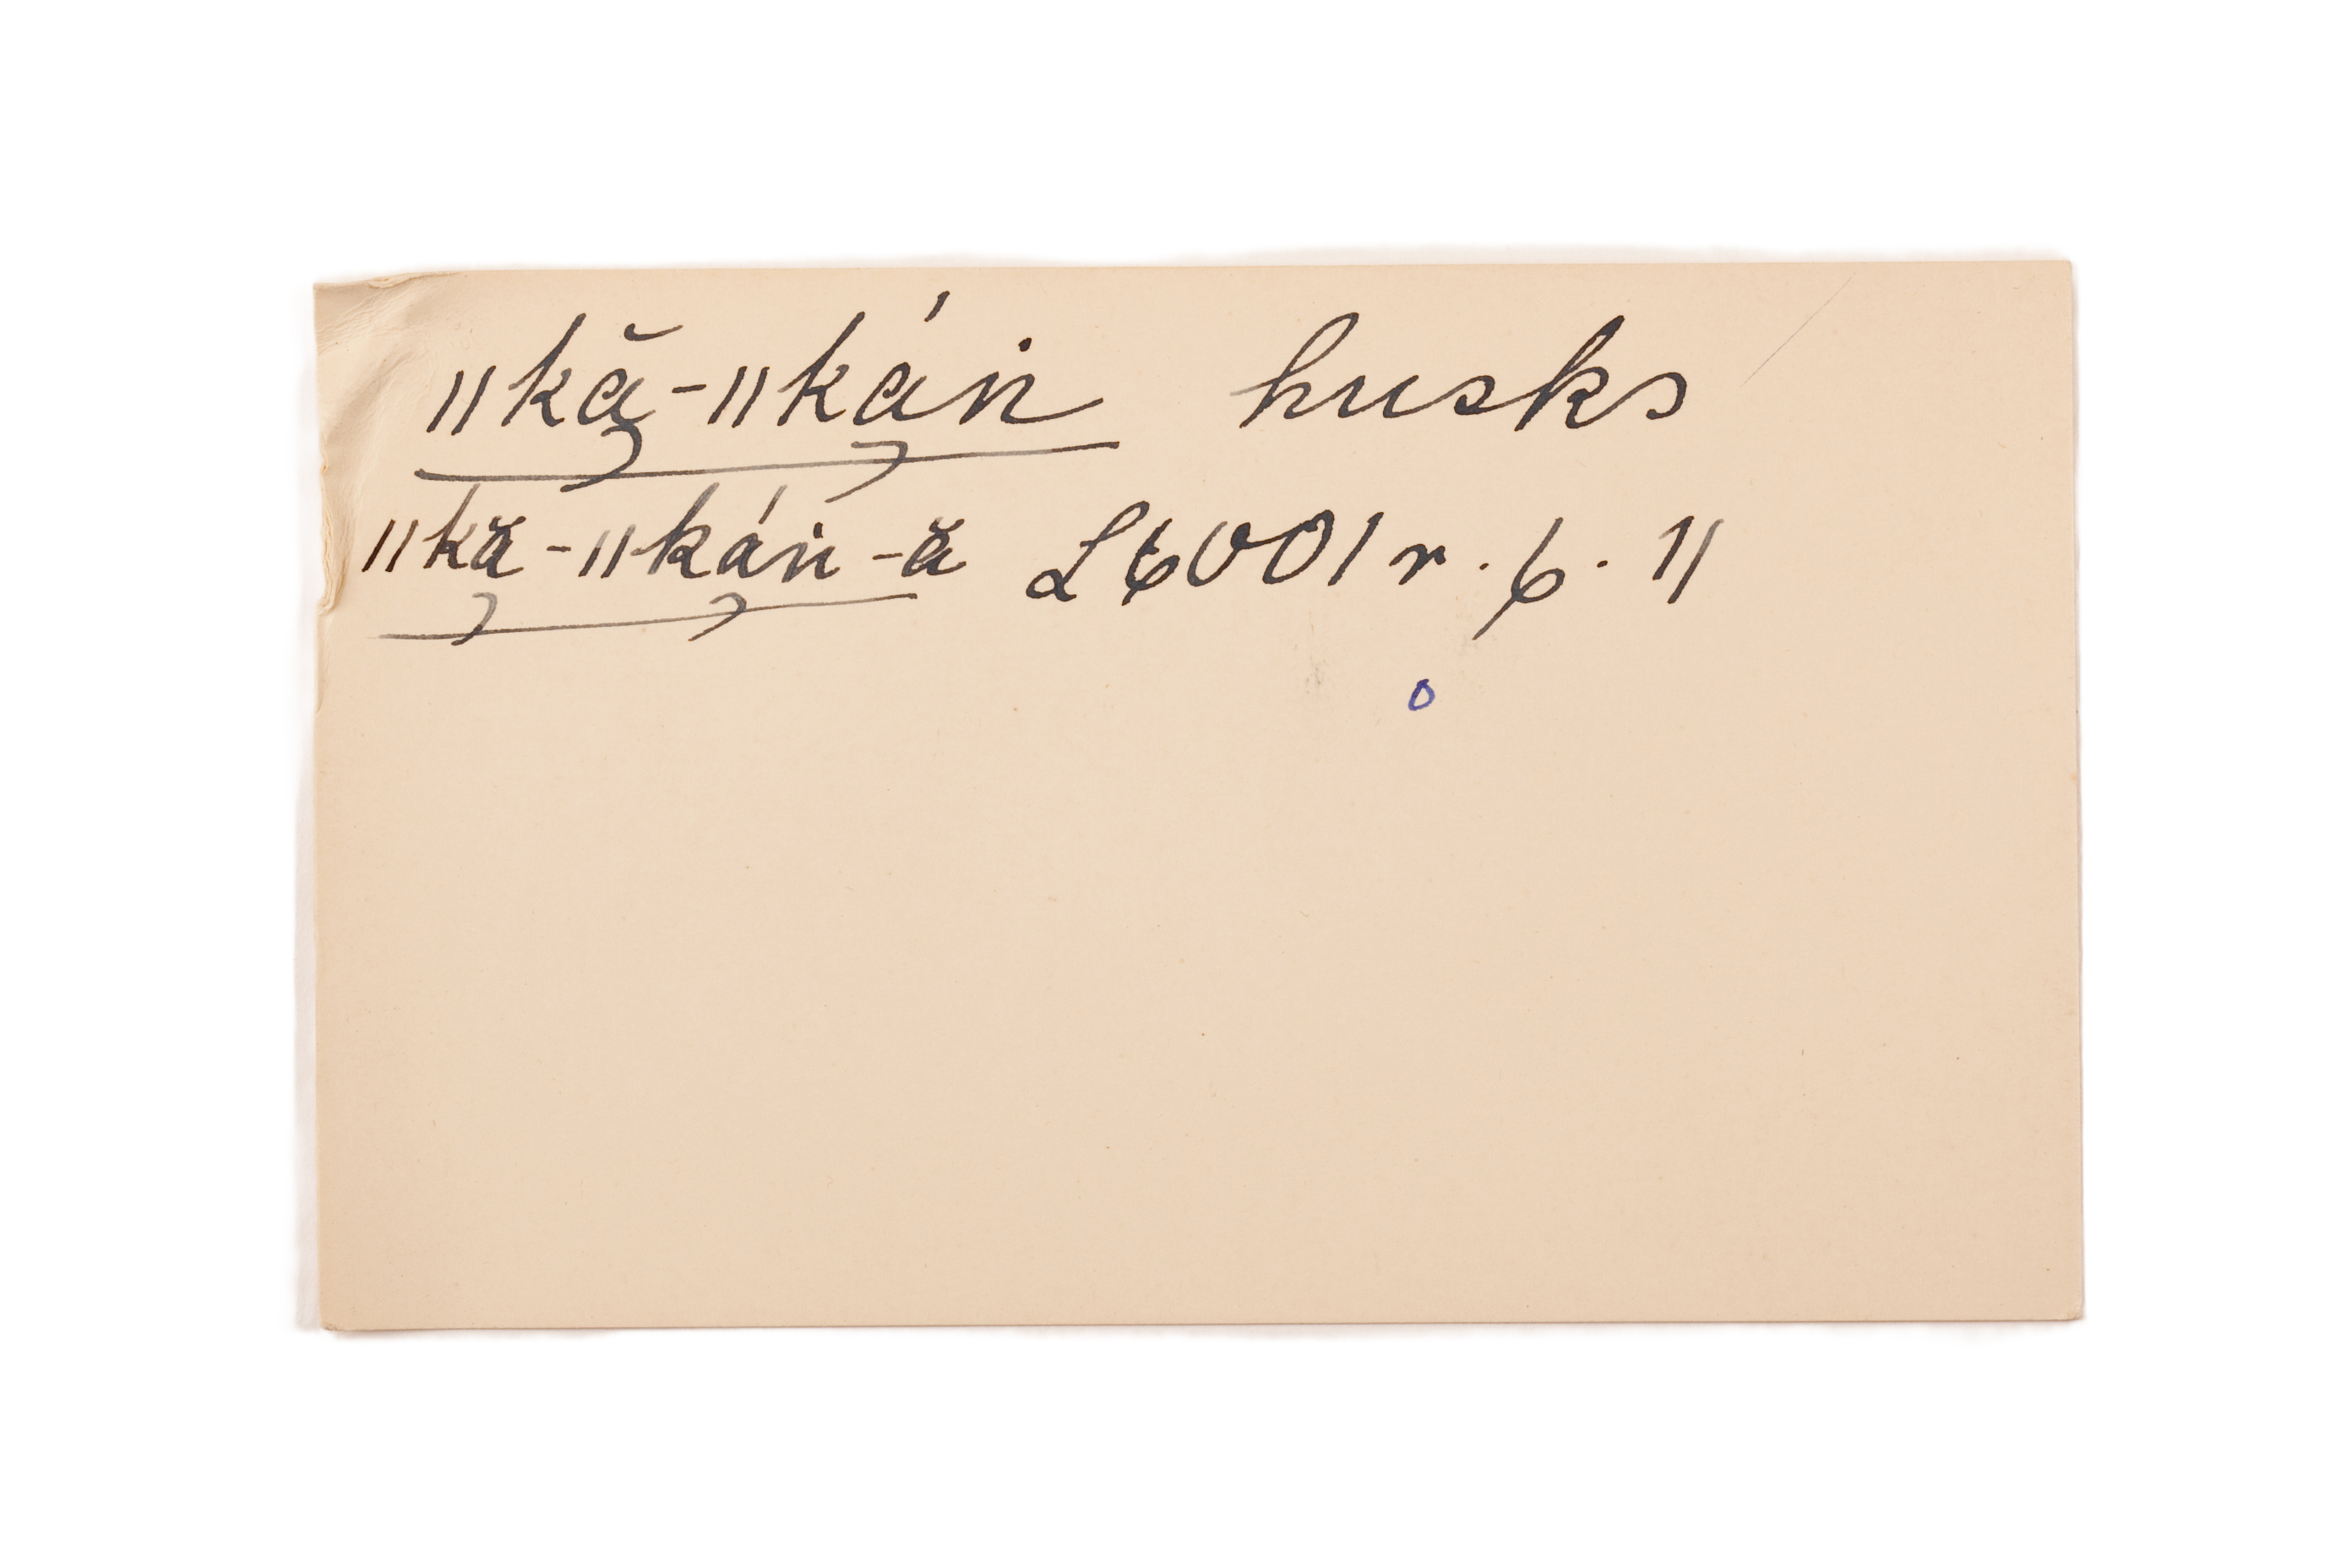 ǁkă̦-ǁká̦ṅ husks
ǁkă̦-ǁká̦ṅ-ă L6001r.6.11
o